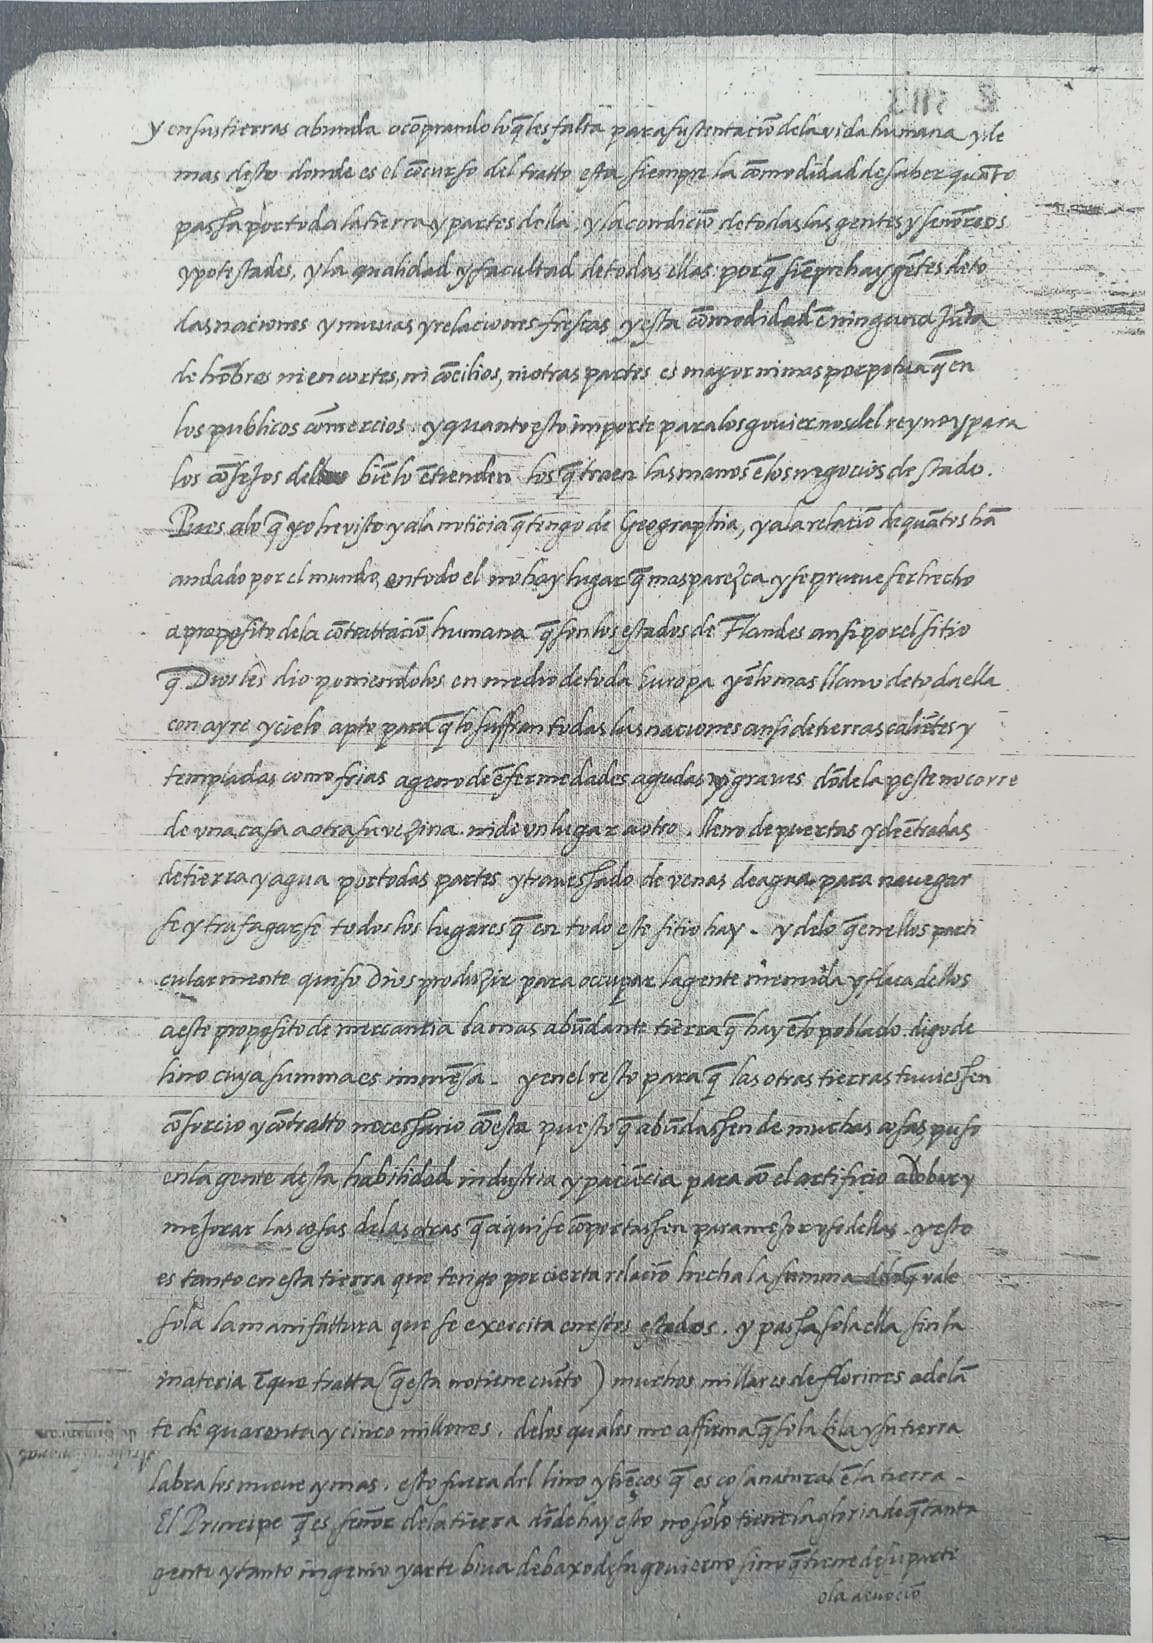 y en sus tierras abunda o cõprando lo q̃ les falta para sustentaciõ de la vida humana y de
mas desto donde es el cõcurso del tratto esta siempre la cõmodidad de saber quãto
passa por toda la tierra y partes della, y la condiciõ de todas las gentes y señores
y potestades, y la qualidad y facultad de todas ellas porq̃ siẽpre hay gẽtes de to
das naciones y nuevas y relaciones frescas y esta cõmodidad ẽ ninguna jũta
de hõbres ni en cortes, ni cõcilios, ni otras partes es mayor ni mas perpetua q̃ en
los publicos cõmercios. y quanto esto importe para los goviernos del reyno y para
los cõsejos bien lo ẽtienden los q̃ traen las manos ẽ los negocios de stado.
Pues a lo q̃ yo he visto y a la noticia q̃ tengo de Geographia, y a la relaciõ de quãtos hã
andado por el mundo, en todo el no hay lugar q̃ mas parezca y se prueve ser hecho
a proposito de la cõtrattaciõ humana q̃ son los estados de Flandes ansi por el sitio
q̃ Dios les dio poniendolos en medio de toda Europa y ẽ lo mas llano de toda ella
con ayre y cielo apto para q̃ lo suffran todas las naciones ansi de tierras caliẽtes y
templadas como frias ageno de ẽfermedades agudas y graves dõde la peste no corre
de una casa a otra su vezina ni de un lugar a otro. lleno de puertas y de ẽtradas
de tierra y agua por todas partes y travessado de venas de agua para navegar
se y trafagarse todos los lugares q̃ en todo este sitio hay. y de lo q̃ en ellos parti
cularmente quiso Dios produzir para occupar la gente menuda y flaca dellos
a este proposito de mercantia la mas abũdante tierra q̃ hay ẽ lo poblado. digo de
lino cuya summa es immẽsa. y en el resto para q̃ las otras tierras tuviessen
cõsorcio y cõtratto necessario cõ esta puesto q̃ abũdassen de muchas cosas, puso
en la gente desta habilidad industria y para cõ el artificio adobar y
mejorar las cosas de las otras q̃ aqui se cõportassen para mejor uso dellas. y esto
es tanto en esta tierra que tengo por cierta relaciõ hecha la summa q̃ vale
sola la manifattura que se exercita en estos estados. y passa sola ella sin la
materia ẽ que tratta (q̃ esta no tiene cuẽto) muchos millares de florines adelã
te de quarenta y cinco millones. de los quales me affirma q̃ sola Lila y su tierra
labra los nueve y mas. esto fuera del lino y liẽços q̃ es cosa natural ẽ la tierra.
El Principe q̃ es señor de la tierra dõde hay esto no solo tiene la gloria de q̃ tanta
gente y tanto ingenio y arte biva debaxo de su govierno sino q̃ tiene de su parte